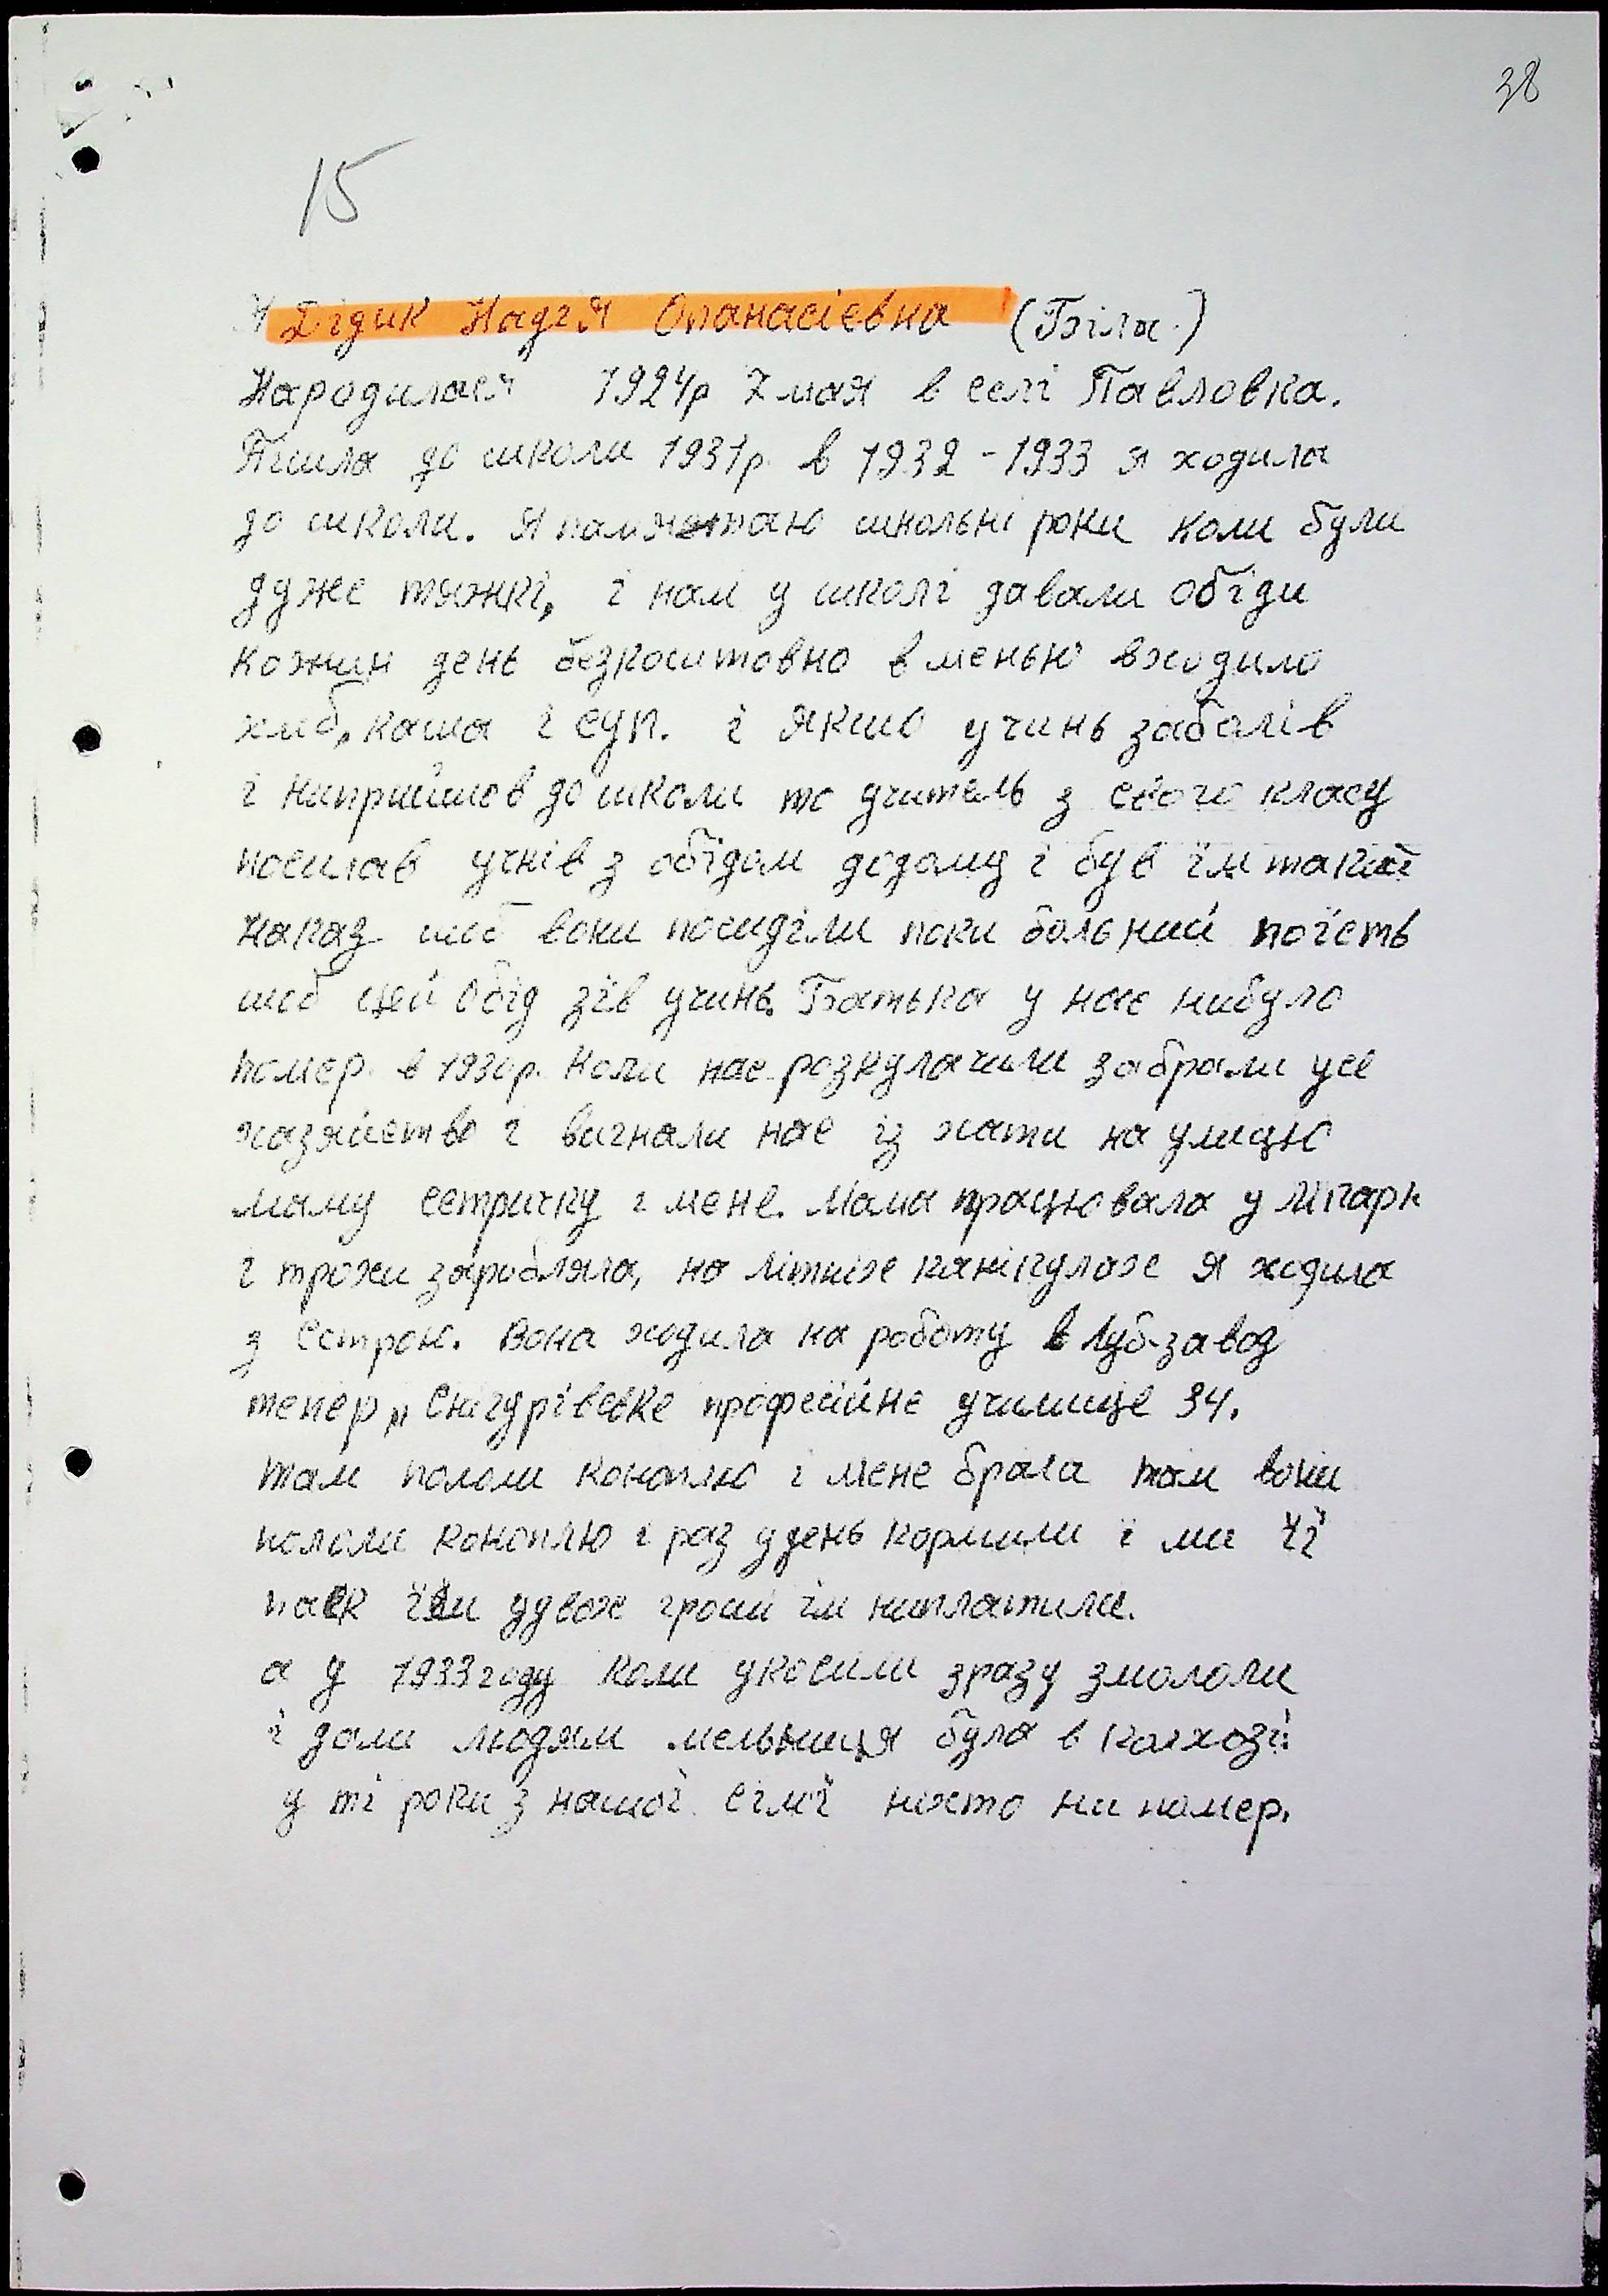 38
15
Я Дідик Надія Опанасієвна (Біла)
Народилася 1924р 7 мая в селі Павловка.
Пішла до школи 1931р. в 1932 - 1933 я ходила
до школи. Я памятаю школьні роки коли були
дуже тяжкі, і нам у школі давали обіди
кожин день безкоштовно в менью входило
хліб, каша і суп. і якшо учинь заболів
і ниприйшов до школи то учитель з свого класу
посилав учнів з обідом додому і був їм такий
наказ шоб вони посиділи поки больний поїсть
шоб цей обід зїв учинь. Батька у нас нибуло
помер в 1930р. Коли нас розкулачили забрали усе
хазяйство і вигнали нас із хати на улицю
маму сетричку і мене. Мама працювала у
і трохи заробляла, на літніх канікулах я ходила
з сстрою. Вона ходила на роботу в Луб-завод
тепер „ Снігурівсвке професійне училище 34.
там пололи коноплю і мене брала там вони
пололи коноплю і раз удень кормили і ми її
паєк їли удвох гроши їм ниплатили.
а у 1933 году коли укосили зразу змололи
і дали людям мельниця була в колхозі
у ті роки з нашої сімї ніхто ни помер.